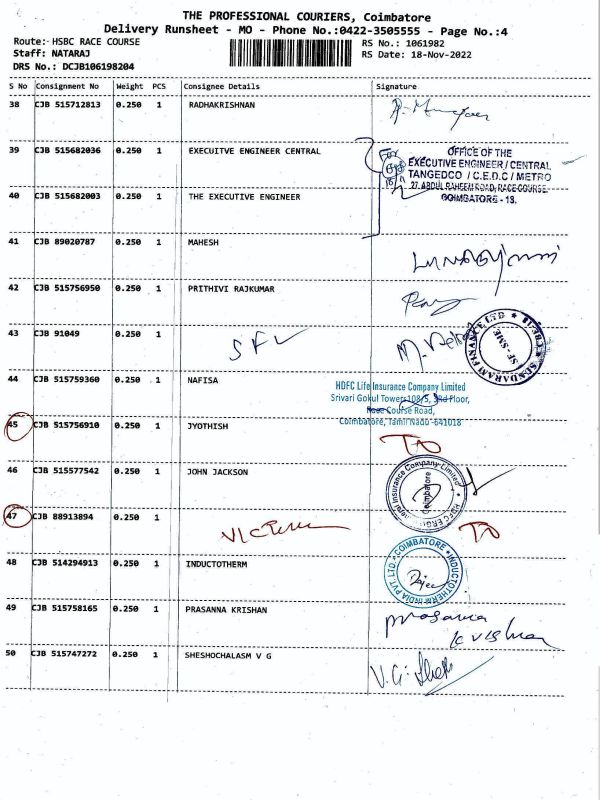 THE PROFESSIONAL COURIERS, Coimbatore
Delivery Runsheet - MO - Phone No.:0422-3505555 - Page No.:4
Route:- HSBC RACE COURSE RS No.: 1061982
Staff: NATARAJ RS Date: 18-Nov-2022
DRS No.: DCJB106198204
S No Consignment No Weight PCS Consignee Details Signature
38 CJB 515712813 0.250 1 RADHAKRISHNAN
39 CJB 515682036 0.250 1 EXECUITVE ENGINEER CENTRAL
For
OFFICE OF THE
EXECUTIVE ENGINEER / CENTRAL
TANGEDCO / C.E.D.C / METRO
27, ABDUL RAHEEM ROAD, RACE COURSE,
COIMBATORE - 18.
40 CJB 515682003 0.250 1 THE EXECUTIVE ENGINEER
41 CJB 89020787 0.250 1 MAHESH
42 CJB 515756950 0.250 1 PRITHIVI RAJKUMAR
43 CJB 91049 0.250 1
SFL
SUNDARAM FINANCE LTD
CBE-18
SF-SME
44 CJB 515759360 0.250 1 NAFISA
HDFC Life Insurance Company Limited
Srivari Gokul Towers108/5, 3Rd Floor,
Race Course Road,
Coimbatore, Tamil Nadu -641018
45 CJB 515756910 0.250 1 JYOTHISH
TO
46 CJB 515577542 0.250 1 JOHN JACKSON
HDFC ERGO General Insurance Company Limited
Coimbatore
47 CJB 88913894 0.250 1
TO
48 CJB 514294913 0.250 1 INDUCTOTHERM
INDUCTOTHERM INDIA PVT. LTD.
COIMBATORE
49 CJB 515758165 0.250 1 PRASANNA KRISHAN
prasanna
krishnan
50 CJB 515747272 0.250 1 SHESHOCHALASM V G